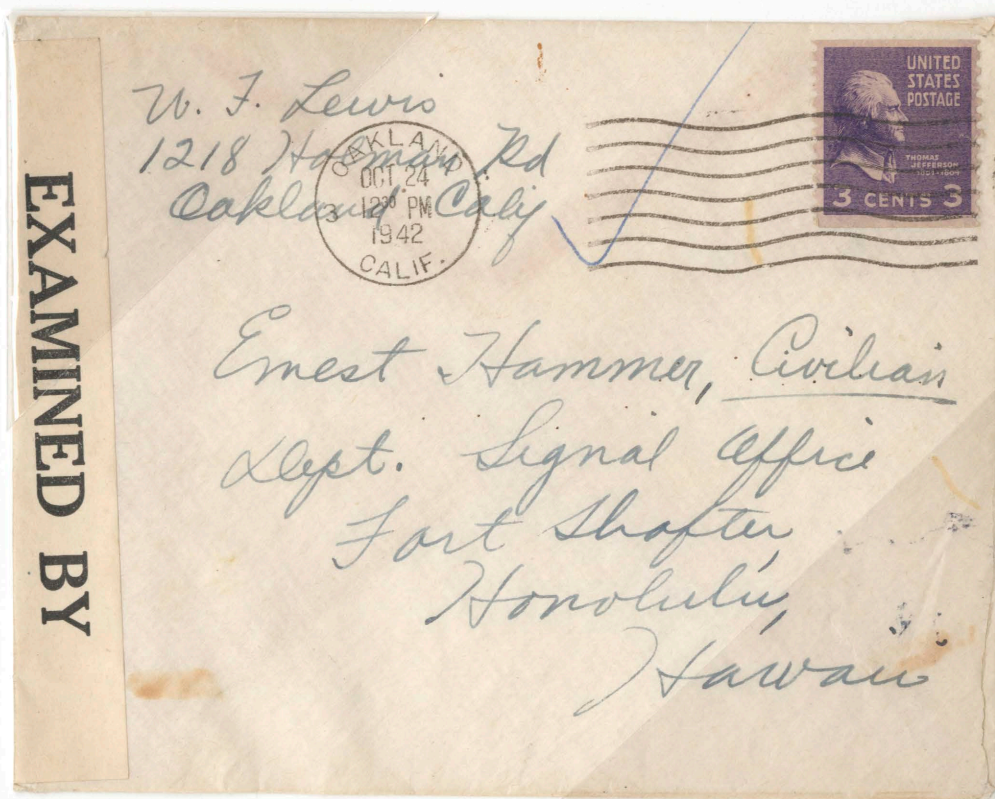 W. F. Lewis
1218 Holman Rd
Oakland Calif
OAKLAND
OCT 24
3 12 30 PM
1942
CALIF.
UNITED
STATES
POSTAGE
THOMAS
JEFFERSON
1801-1809
3 CENTS 3
EXAMINED BY
Ernest Hammer, Civilian
Dept. Signal Office
Fort Shafter,
Honolulu,
Hawaii